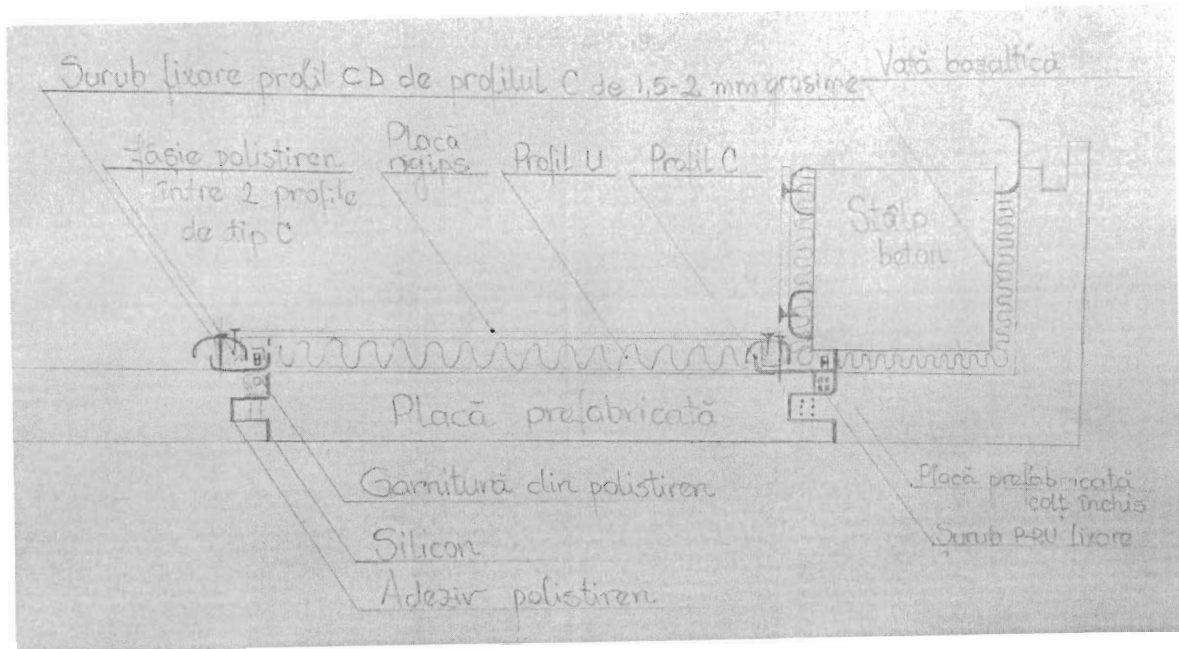 Șurub fixare profil CD de profilul C de 1,5-2 mm grosime
Vată bazaltică
Fâșie polistiren
între 2 profile
de tip C
Placă
rigips
Profil U
Profil C
Stâlp
beton
Placă prefabricată
Garnitură din polistiren
Silicon
Adeziv polistiren
Placă prefabricată
colț închis
Șurub fixare